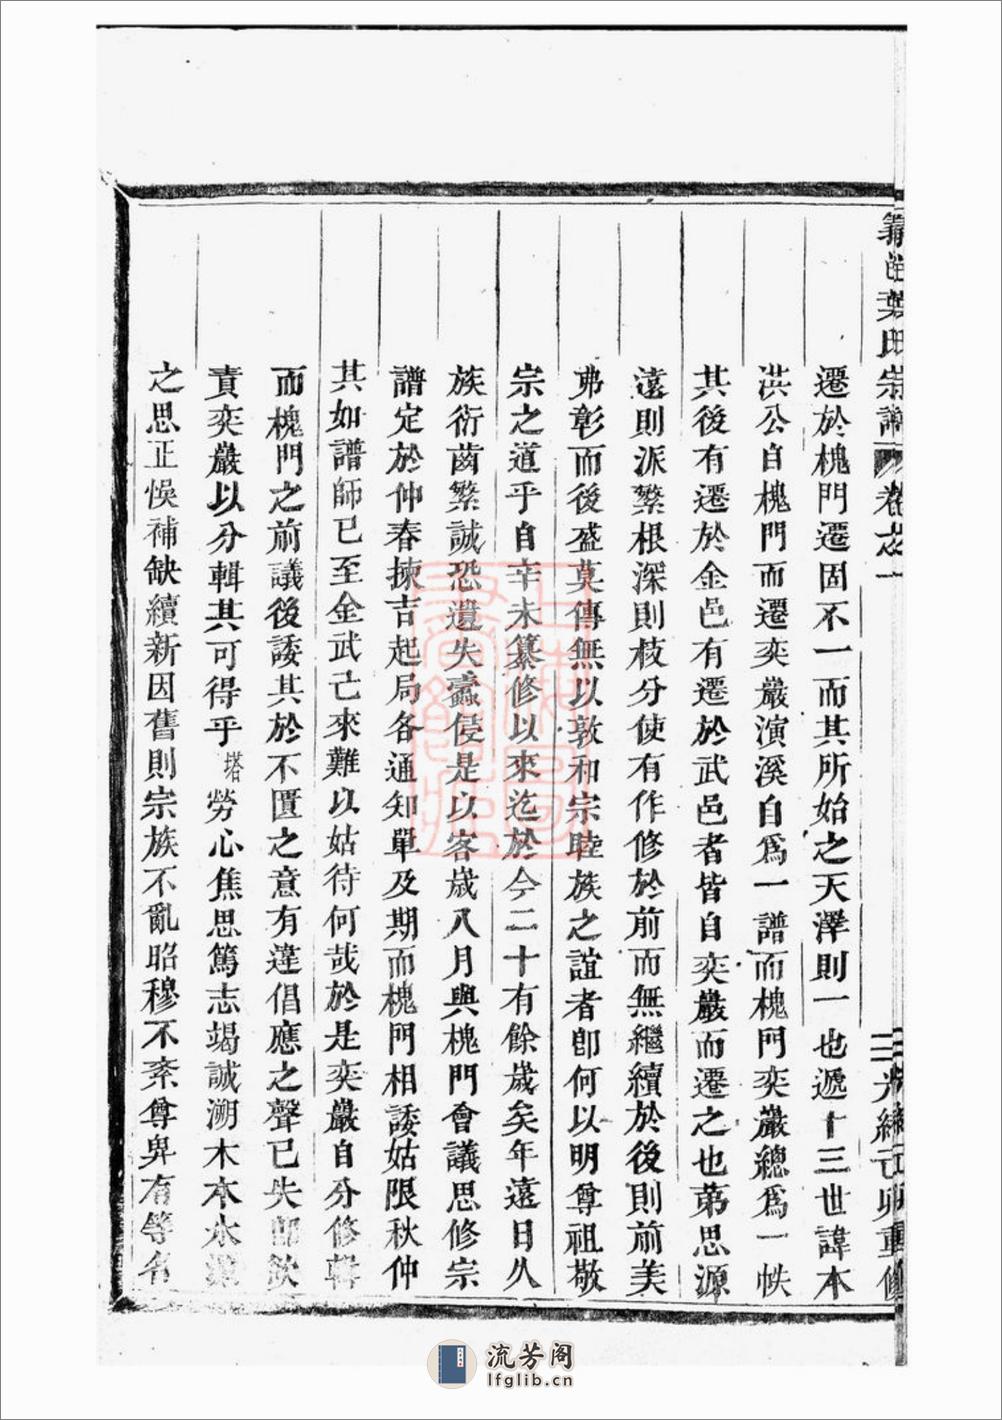 葉氏宗譜 卷之一 三 光緒己卯重修
遷於槐門遷固不一而其所始之天澤則一也遞十三世諱本
洪公自槐門而遷奕巖演溪自爲一譜而槐門奕巖總爲一帙
其後有遷於金邑有遷於武邑者皆自奕巖而遷之也苐思源
遠則派繁根深則枝分使有作修於前而無繼續於後則前美
弗彰而後盛莫傳無以敦和宗睦族之誼者卽何以明尊祖敬
宗之道乎自辛未纂修以來迄於今二十有餘歲矣年遠日久
族衍齒繁誠恐遺失蠹侵是以客歲八月與槐門會議思修宗
譜定於仲春揀吉起局各通知單及期而槐門相諉姑限秋仲
其如譜師已至金武己來難以姑待何哉於是奕巖自分修輯
而槐門之前議後諉其於不匱之意有違倡應之聲已失卽欲
責奕巖以分輯其可得乎塔勞心焦思篤志竭誠溯木本水源
之思正悞補缺續新因舊則宗族不亂昭穆不紊尊昇有等名
流芳阁
lfglib.cn